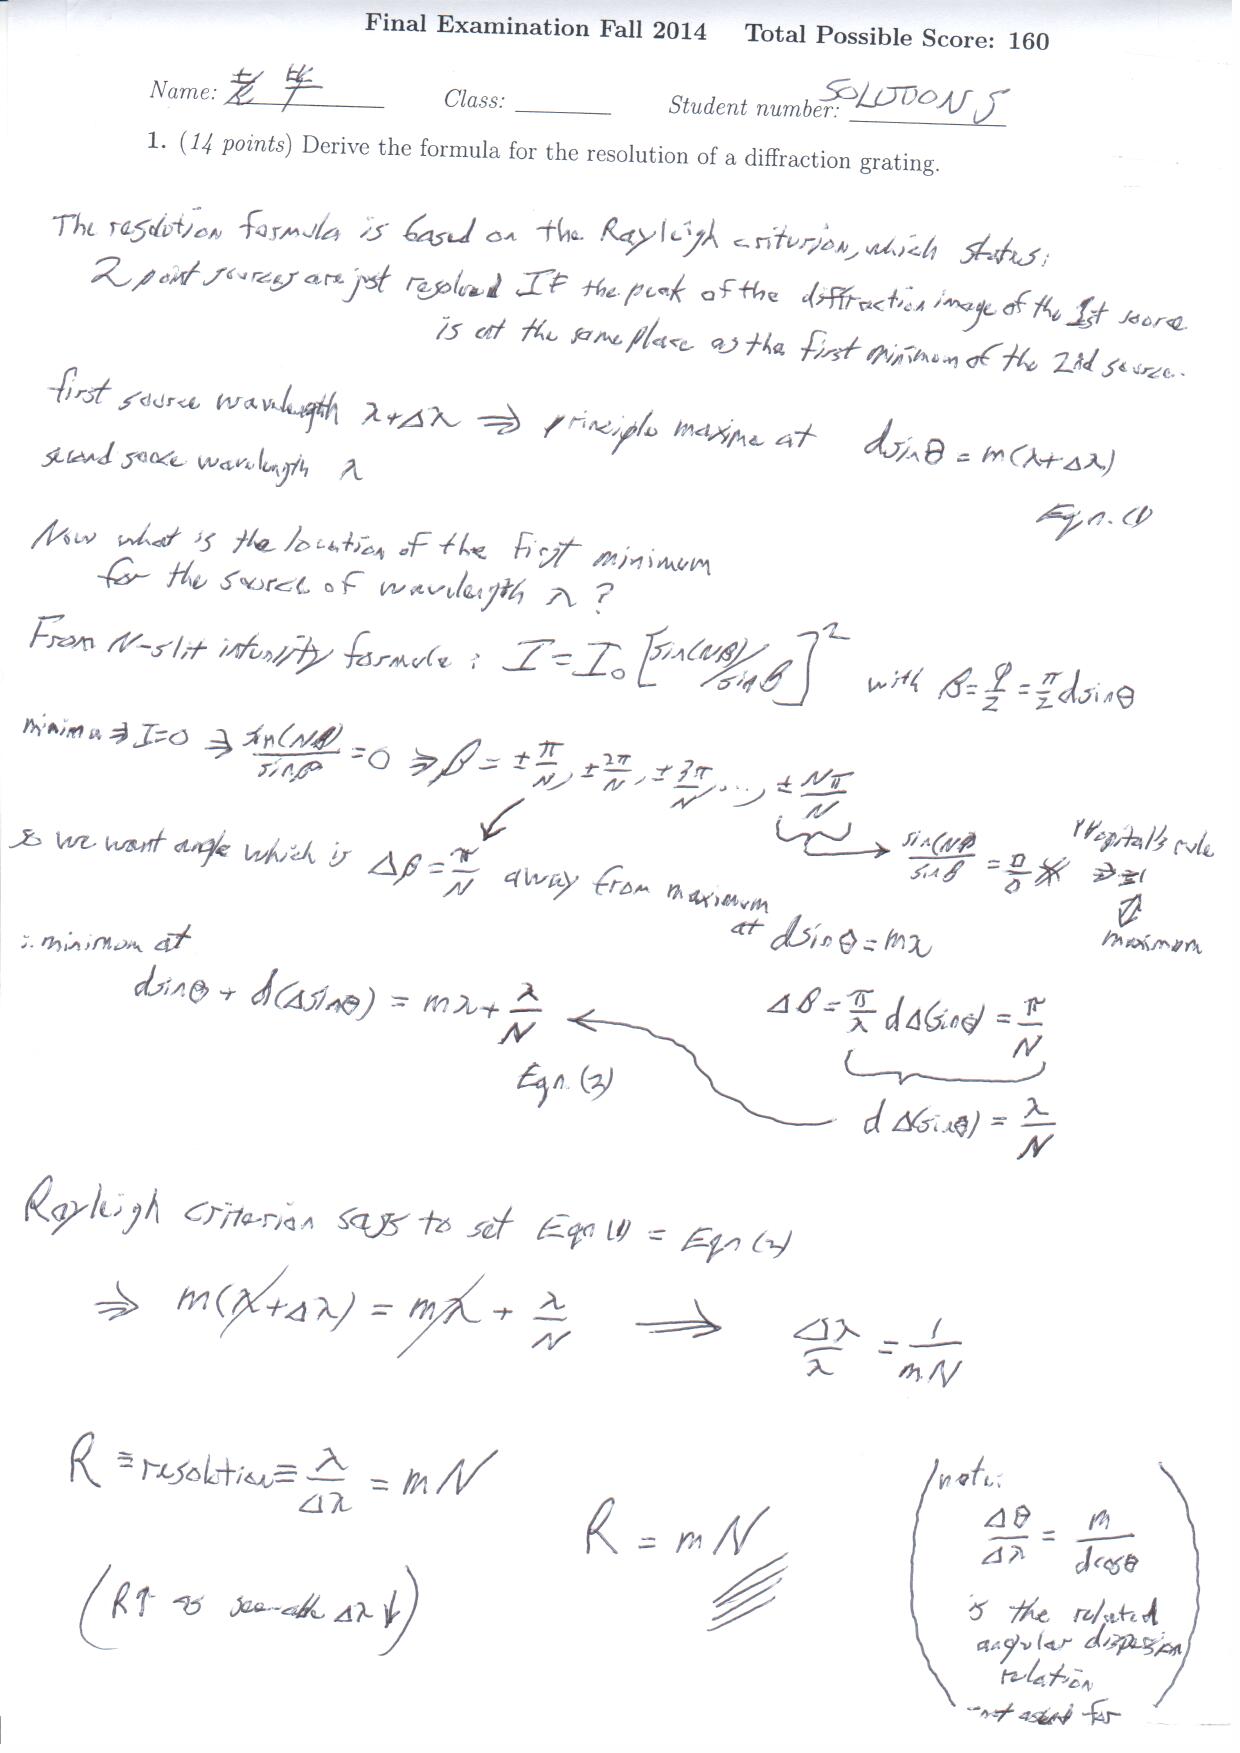 Final Examination Fall 2014 Total Possible Score: 160
Name: 老毕 Class: Student number: SOLUTIONS
1. (14 points) Derive the formula for the resolution of a diffraction grating.
The resolution formula is based on the Rayleigh criturion, which states:
2 point sources are just resolved IF the peak of the diffraction image of the 1st source
is at the same place as the first minimum of the 2nd source.
first source wavelength λ+Δλ ⇒ principle maxima at d sinθ = m(λ+Δλ)
second source wavelength λ
Eqn. (1)
Now what is the location of the first minimum
for the source of wavelength λ?
From N-slit intensity formula: I = I₀ [sin(Nβ)/sinβ]² with β = φ/2 = π/2 d sinθ
minima ⇒ I=0 ⇒ sin(Nβ)/sinβ = 0 ⇒ β = ± π/N, ± 2π/N, ± 3π/N, ..., ± Nπ/N
so we want angle which is Δβ = π/N away from maximum
at d sinθ = mλ
sin(Nβ)/sinβ = 0/0 l'Hopital's rule
⇒ = 1
⇕
maximum
∴ minimum at
d sinθ + d(Δsinθ) = mλ + λ/N
Eqn. (2)
Δβ = π/λ d Δ(sinθ) = π/N
d Δ(sinθ) = λ/N
Rayleigh criterion says to set Eqn (1) = Eqn (2)
⇒ m(λ+Δλ) = mλ + λ/N ⇒ Δλ/λ = 1/mN
R ≡ resolution ≡ λ/Δλ = mN
R = mN
(R↑ as see-able Δλ↓)
(note:
Δθ/Δλ = m/d cosθ
is the related
angular dispersion
relation
-not asked for)